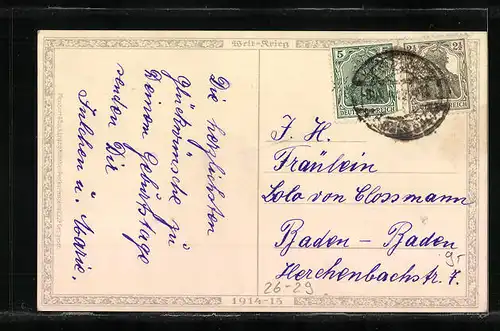 Welt-Krieg
Die herzlichsten
Glückwünsche zu
Deinem Geburtstage
senden Dir
Julchen u. Marie.
5 5
DEUTSCHES REICH
2½ 2½
REICH
J. H.
Fräulein
Lola von Clossmann
Baden-Baden
Herchenbachstr. 7.
9,-
26-29
1914-15